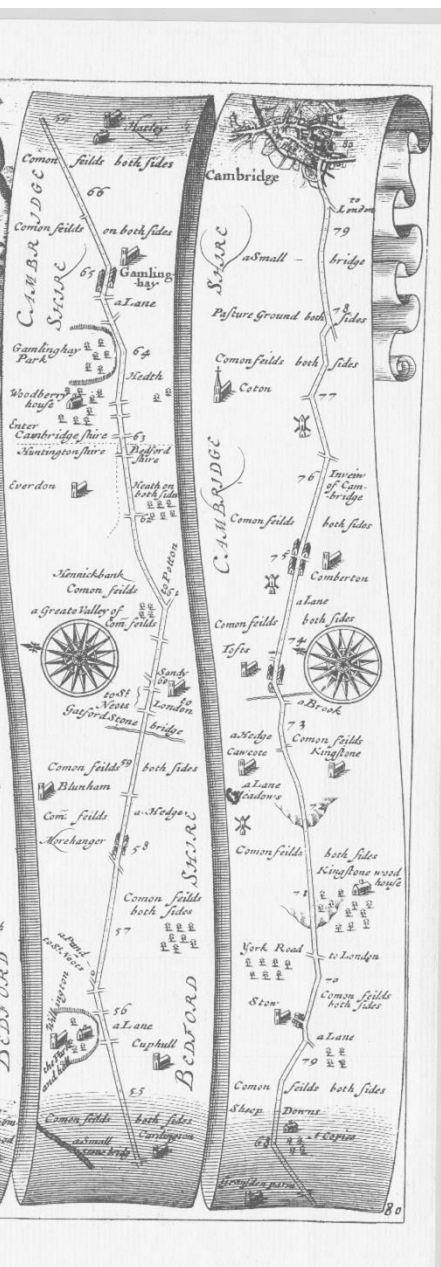 Hatley
Comon feilds both sides
66
Comon feilds on both sides
CAMBRIDGE
SHIRE
65
Gamling-
hay
a Lane
Gamlinghay
Park
64
Hedth
Woodberry
house
Enter
Cambridge shire
63
Huntingtonshire
Bedford
shire
Everdon
Heath on
both sides
62
to Potton
Hennickbank
Comon feilds
61
a Greate Valley of
Com̄ feilds
Sandy
60
to St
Neots
to
London
Gatford Stone bridge
Comon feilds 59 both sides
Blunham
Com̄. feilds
a Hedge
Morehanger
58
BEDFORD
SHIRE
Comon feilds
both sides
57
to St. Neots
Wilington
56
a Lane
Cuphull
the Park
and hall
55
Comon feilds both sides
Cardington
a Small
stone bridg
BEDFORD
Cambridge
to
London
79
a Small bridge
SHIRE
78
Pasture Ground both sides
Comon feilds both sides
Coton
77
CAMBRIDGE
76
Inveiw
of Cam-
bridge
Comon feilds both sides
75
Comberton
a Lane
Comon feilds both sides
74
Tofts
a Brook
73
a Hedge
Comon feilds
Cawcote
Kingstone
a Lane
Meadows
72
Comon feilds both sides
Kingstone wood
house
71
York Road
to London
70
Comon feilds
both sides
Stow
a Lane
79
Comon feilds both sides
Sheep Downs
68
A Copice
Graysden parva
80